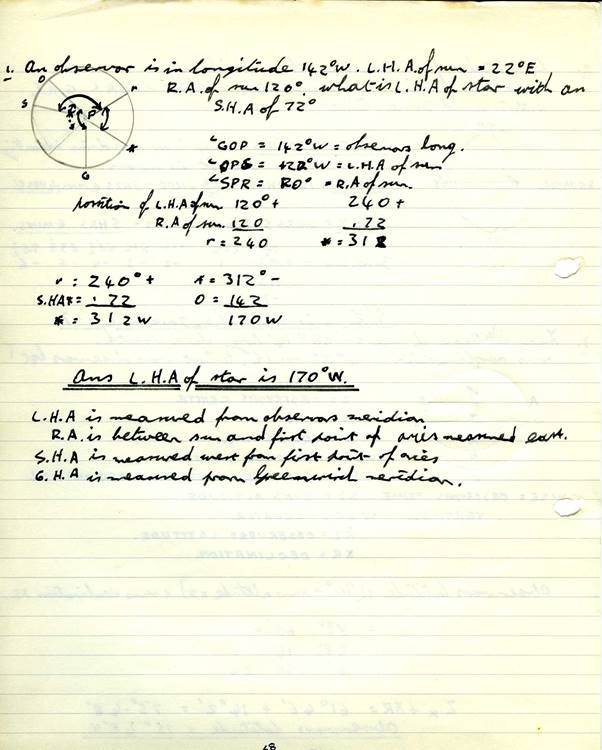 1. An observor is in longitude 142°W. L.H.A of sun = 22°E
R.A. of sun 120°. what is L.H.A of star with an
S.H.A of 72°
O
S
r
P
*
G
∠GOP = 142°W = observors long.
∠OPS = 22°W = L.H.A of sun
∠SPR = 120° = R.A of sun.
position of L.H.A of sun 120° + 240 +
R.A of sun. 120 72
r = 240 * = 312
r = 240° + * = 312° -
S.HA* = 72 O = 142
* = 312 W 170 W
Ans L.H.A of star is 170°W.
L.H.A is measured from observors meridian
R.A. is between sun and first point of aries measured east.
S.H.A is measured west from first point of aries
G.H.A is measured from Greenwich meridian.
68